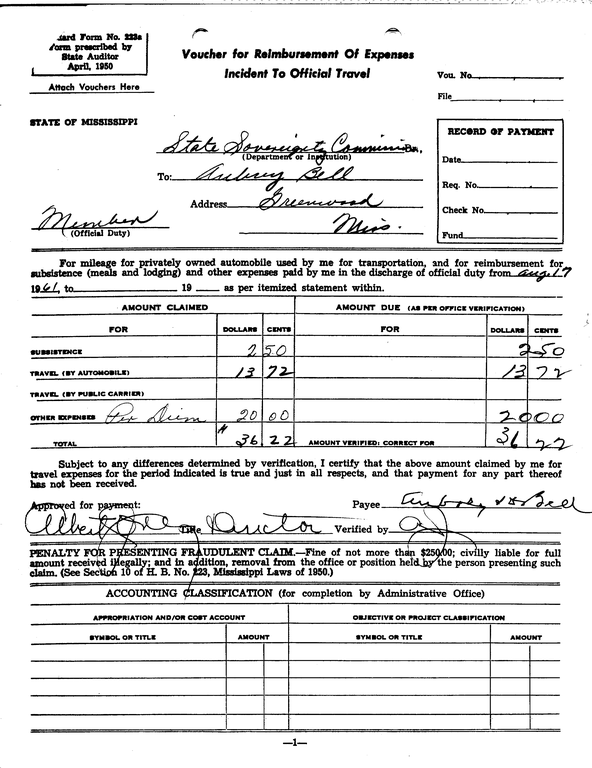 ard Form No. 223a
form prescribed by
State Auditor
April, 1950
Attach Vouchers Here
Voucher for Reimbursement Of Expenses
Incident To Official Travel
Vou. No.
File
STATE OF MISSISSIPPI
State Sovereignty Commission,
(Department or Institution)
To: Aubrey Bell
Address Greenwood
Miss.
Member
(Official Duty)
RECORD OF PAYMENT
Date
Req. No.
Check No.
Fund
For mileage for privately owned automobile used by me for transportation, and for reimbursement for
subsistence (meals and lodging) and other expenses paid by me in the discharge of official duty from Aug. 17
1961, to 19 as per itemized statement within.
AMOUNT CLAIMED AMOUNT DUE (AS PER OFFICE VERIFICATION)
FOR DOLLARS CENTS FOR DOLLARS CENTS
SUBSISTENCE 2 50 2 50
TRAVEL (BY AUTOMOBILE) 13 72 13 72
TRAVEL (BY PUBLIC CARRIER)
OTHER EXPENSES Per Diem 20 00 20 00
TOTAL 36 22 AMOUNT VERIFIED: CORRECT FOR 36 22
Subject to any differences determined by verification, I certify that the above amount claimed by me for
travel expenses for the period indicated is true and just in all respects, and that payment for any part thereof
has not been received.
Approved for payment: Payee Aubrey H Bell
Albert Title Director Verified by
PENALTY FOR PRESENTING FRAUDULENT CLAIM.—Fine of not more than $250.00; civilly liable for full
amount received illegally; and in addition, removal from the office or position held by the person presenting such
claim. (See Section 10 of H. B. No. 223, Mississippi Laws of 1950.)
ACCOUNTING CLASSIFICATION (for completion by Administrative Office)
APPROPRIATION AND/OR COST ACCOUNT OBJECTIVE OR PROJECT CLASSIFICATION
SYMBOL OR TITLE AMOUNT SYMBOL OR TITLE AMOUNT
—1—